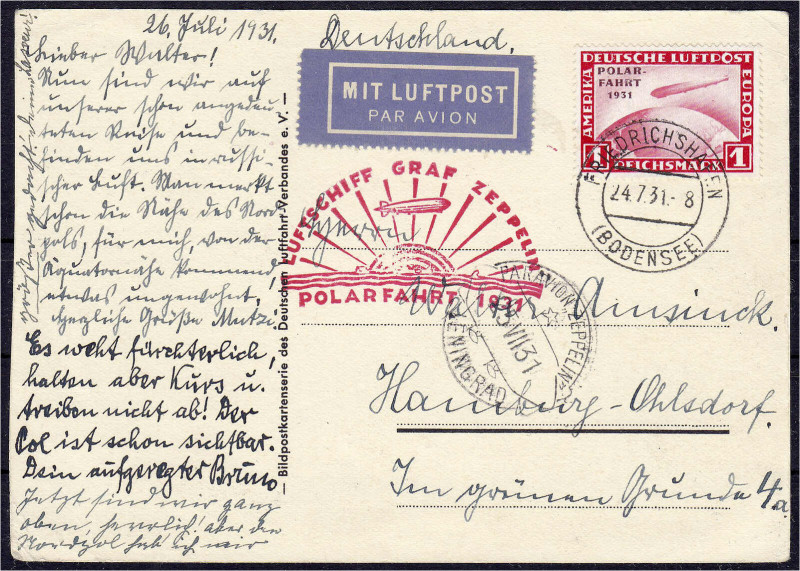 26. Juli 1931.
Lieber Walter!
Nun sind wir auf
unserer schon angedeu-
teten Reise und be-
finden uns in russi-
scher Luft. Man merkt
schon die Nähe des Nord-
pols, für mich, von der
Äquatornähe kommend,
etwas ungewohnt,
herzliche Grüße Mutzi.
Es weht fürchterlich,
halten aber Kurs u.
treiben nicht ab! Der
Pol ist schon sichtbar.
Dein aufgeregter Bruno
Jetzt sind wir ganz
oben, herrlich! aber den
Nordpol hab ich mir
– Bildpostkartenserie des Deutschen Luftfahrt-Verbandes e. V. –
Deutschland.
MIT LUFTPOST
PAR AVION
DEUTSCHE LUFTPOST
AMERIKA
EUROPA
POLAR-
FAHRT
1931
1 REICHSMARK 1
FRIEDRICHSHAFEN
24.7.31.-8
(BODENSEE)
LUFTSCHIFF GRAF ZEPPELIN
POLARFAHRT 1931
PAR AVION ZEPPELIN
VII 31
LENINGRAD
Herrn
Walter Amsinck.
Hamburg-Ohlsdorf.
Im grünen Grunde 4a.